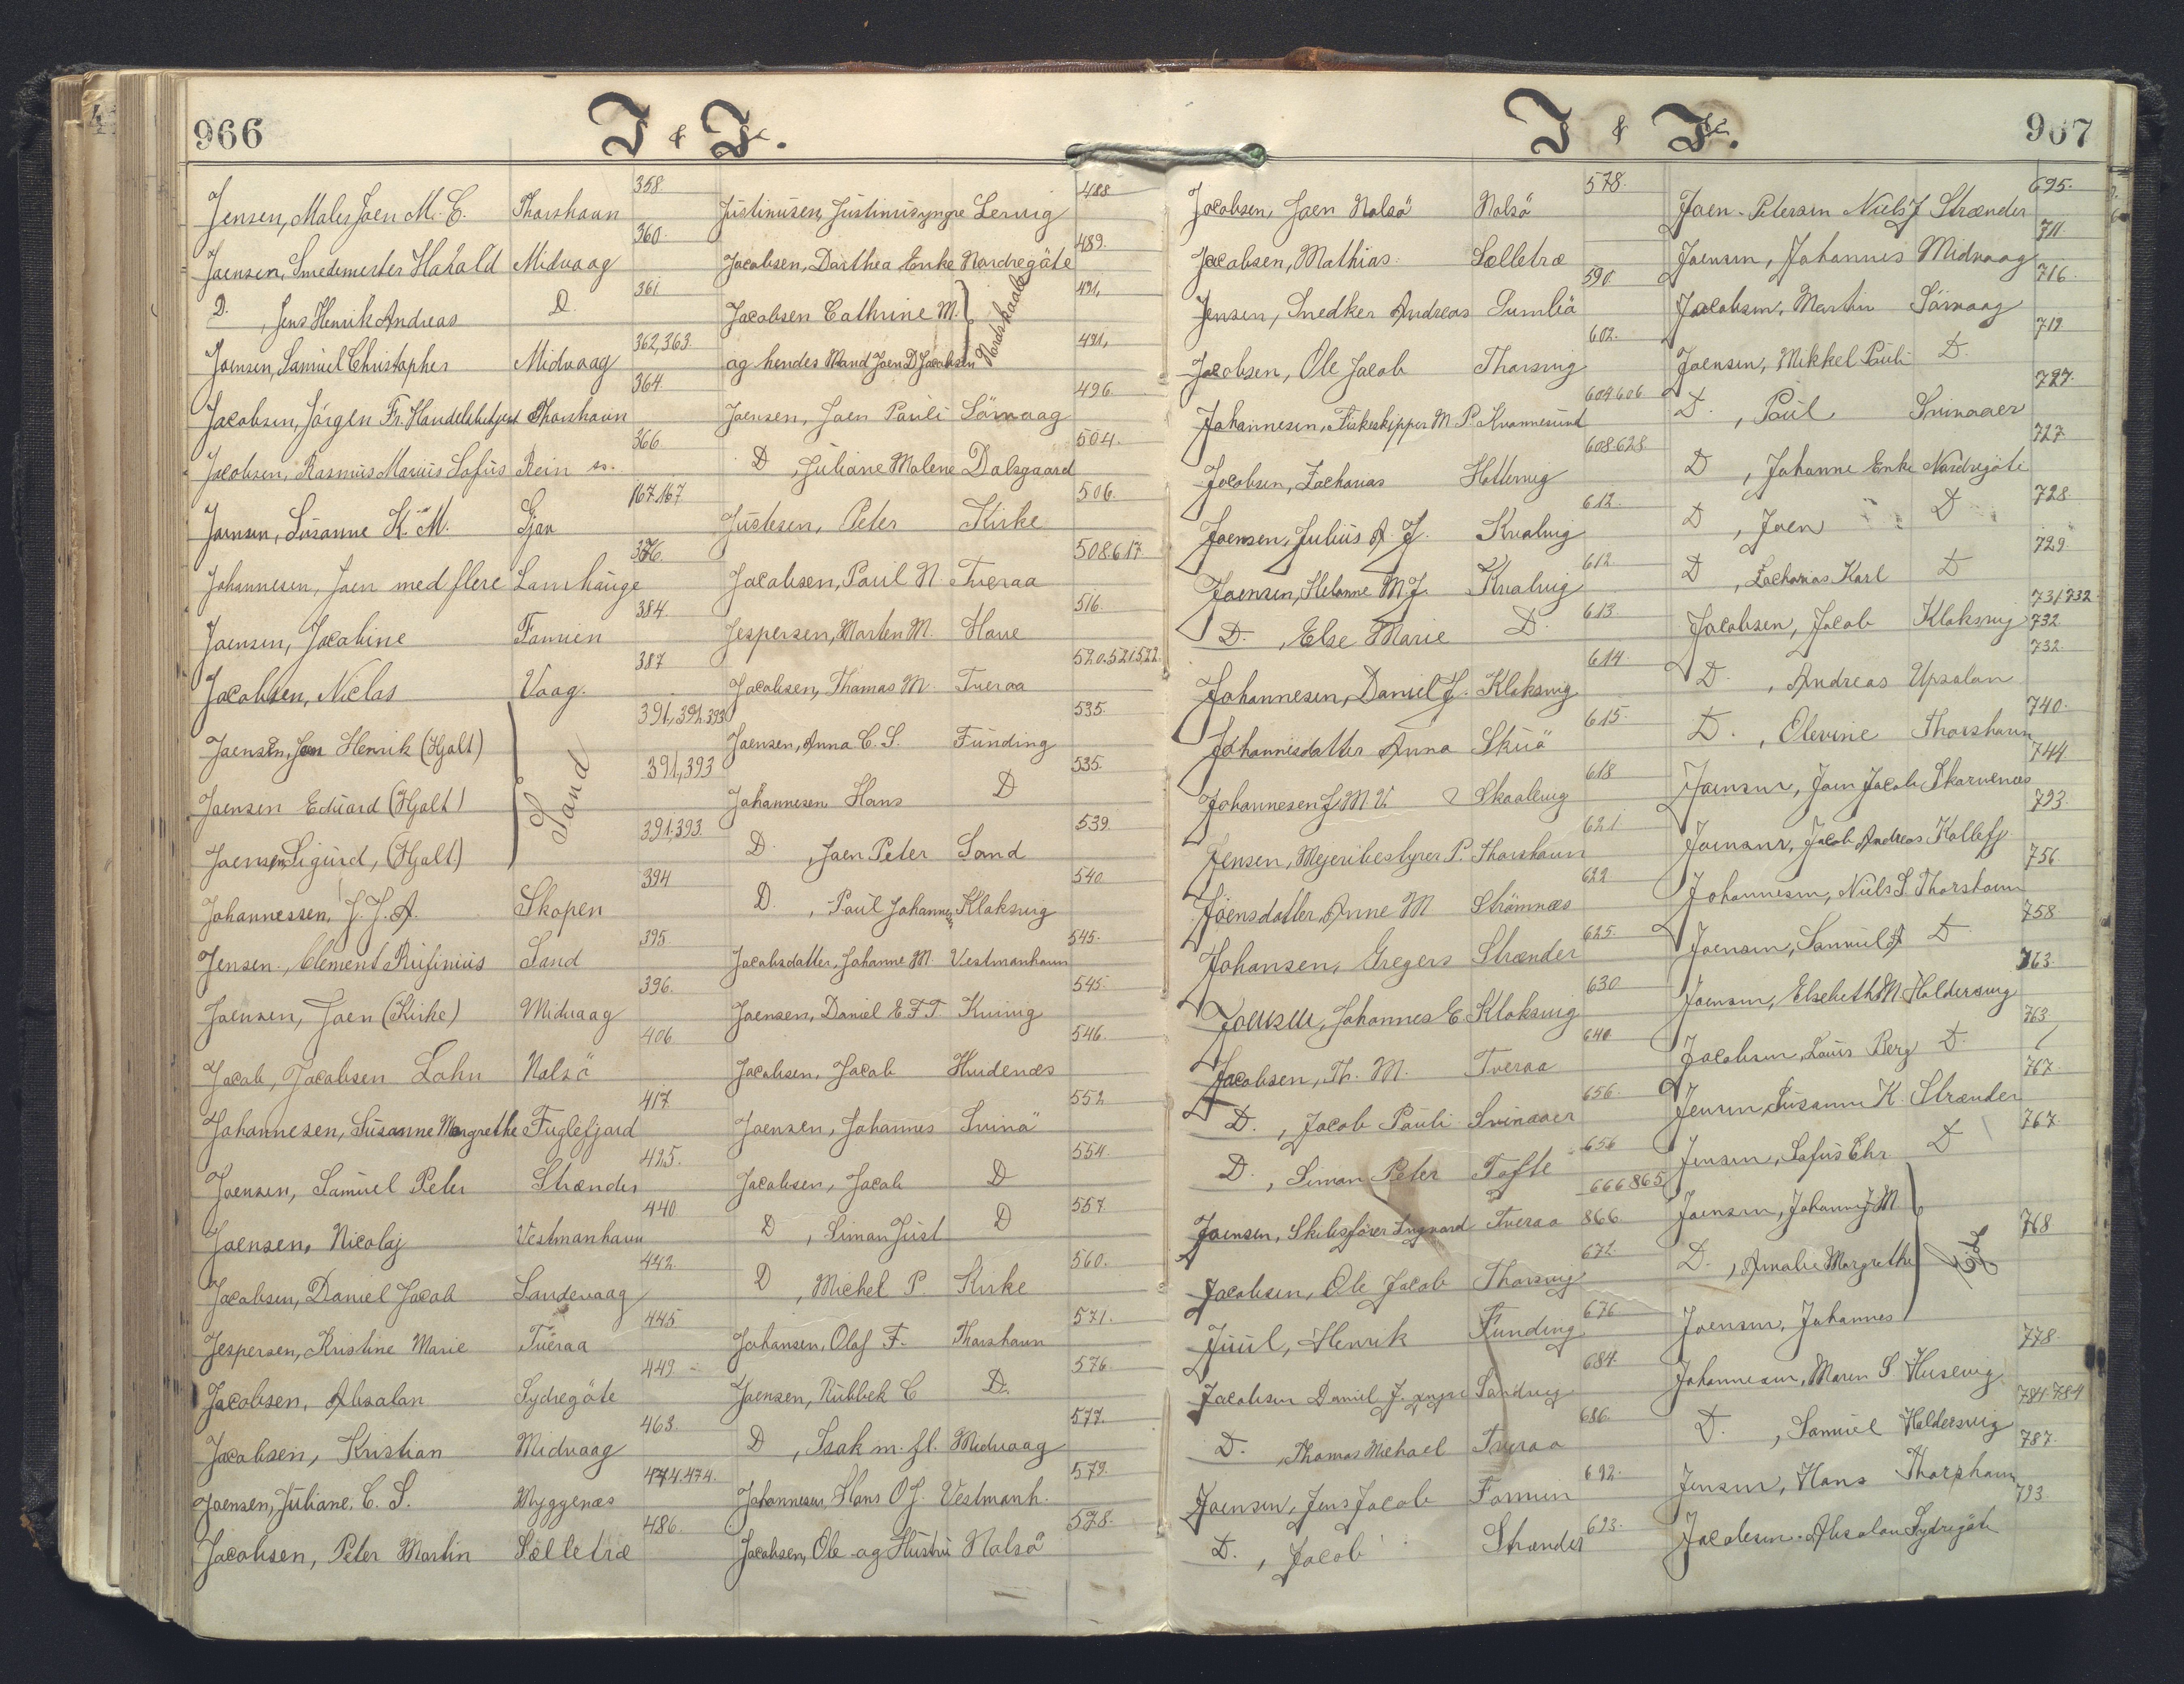 966
J & J.
Jensen, Maler Joen M. C. Thorshavn 358
Joensen, Smedemester Harald Midvaag 360.
D. , Jens Henrik Andreas D. 361
Joensen, Samuel Christopher Midvaag 362,363.
Jacobsen, Jörgen Fr. Handelsbetjent Thorshavn 364.
Jacobsen, Rasmus Marius Sofus Rein s. 366.
Joensen, Susanne K. M. Gjov 167.167
Johannesen, Joen med flere Lamhauge 376.
Joensen, Jacobine Famien 384.
Jacobsen, Niclas Vaag. 387
Joensen, Jon Henrik (Hjalt) 391,392.393
Joensen Eduard (Hjalt) Sand 391,393
Joensen, Sigurd, (Hjalt.) 391.393
Johannessen, J. J. A. Skopen 394
Jensen, Clement Rufinius Sand 395.
Joensen, Joen (Kirke) Midvaag 396.
Jacob, Jacobsen Lohn Nolsö 406.
Johannesen, Susanne Margrethe Fuglefjord 417.
Joensen, Samuel Peter Strænder 425.
Joensen, Nicolaj Vestmanhavn 440
Jacobsen, Daniel Jacob Sandevaag 442.
Jespersen, Kristine Marie Tveraa 445
Jacobsen, Absalon Sydregöte 449.
Jacobsen, Kristian Midvaag 463.
Joensen, Juliane, C. S. Myggenæs 474.474.
Jacobsen, Peter Martin Selletræ 486.
Justinusen, Justinus yngre Lervig 488
Jacobsen, Darthea Enke Nordregöte 489.
Jacobsen Cathrine M. 491,
og hendes Mand Joen D Jacobsen Nordskaale 491,
Joensen, Joen Pauli Sörvaag 496.
D , Juliane Malene Dalsgaard 504.
Justesen, Peter Kirke 506.
Jacobsen, Paul N Tveraa 508.617
Jespersen, Morten M. Hove 516.
Jacobsen, Thomas M. Tveraa 520.521.522.
Joensen, Anna C. S. Funding 535.
Johannesen Hans D 535.
D. , Joen Peter Sand 539.
D. , Poul Johannes Klaksvig 540.
Jacobsdatter, Johanne M. Vestmanhavn 545.
Joensen, Daniel E. F. T. Kvivig 545.
Jacobsen, Jacob Hvidenæs 546.
Joensen, Johannes Svinö 552
Jacobsen, Jacob D 554.
D , Simon Just D 557.
D , Michel P Kirke 560.
Johansen, Olaf F. Thorshavn 571.
Joensen, Rubbek C D. 576.
D , Isak m. fl. Midvaag 577.
Johannesen, Hans O J. Vestmanh. 579.
Jacobsen, Ole og Hustru Nolsö 578.
967
J & J.
Jacobsen, Joen Nolsö Nolsö 578.
Jacobsen, Mathias Selletræ
Jensen, Snedker Andreas Sumbö 590.
Jacobsen, Ole Jacob Thorsvig 602.
Johannesen, Fiskeskipper M. P. Kvannesund 604 606
Jacobsen, Zacharias Hattervig 608 628
Joensen, Julius A. J. Kvalvig 612.
Joensen, Helanne M. J. Kvalvig 612.
D. , Else Marie D. 613.
Johannesen, Daniel J. Klaksvig 614.
Johannisdatter Anna Skuö 615.
Johannesen J. M. V. Skaalevig 618
Jensen, Mejeribestyrer P. Thorshavn 621
Joensdatter, Anne M Strömnæs 622
Johansen, Gregers Strænder 625.
Joensen, Johannes E. Klaksvig 630
Jacobsen, Th. M. Tveraa 640.
D. , Jacob Pauli Svinaaer 656.
D. , Simon Peter Tofte 656
Joensen, Skibsfører Ingvard Tveraa 666 865 866.
Jacobsen, Ole Jacob Thorsvig 672.
Juul, Henrik Funding 676
Jacobsen Daniel J. yngre Sandvig 684.
D. , Thomas Michael Tveraa 686.
Joensen, Jens Jacob Famien 692.
D. , Jacob Strænder 693.
Joen-Petersen Niels J Strænder 695.
Joensen, Johannes Midvaag 711.
Jacobsen, Martin Sörvaag 716.
Joensen, Mikkel Pauli D. 719
D. , Poul Svinaaer 727.
D , Johanne Enke Nordregöte 727
D , Joen D 728.
D , Zacharias Karl D 729
Jacobsen, Jacob Klaksvig 731 732 732
D. , Andreas Upsalan 732.
D. , Olevine Thorshavn 740.
Joensen, Joen Jacob Skarvenæs 744
Joensen, Jacob Andreas Kollefj 793.
Johannesen, Niels S. Thorshavn 756.
Joensen, Samuel J D 758
Joensen, Elsebeth M Haldersvig 763.
Jacobsen, Louis Berg D. 763
Jensen, Susanne K. Strænder 767.
Jensen, Sofus Chr. D 767.
Joensen, Johannes J M
D. , Amalie Margrethe Ejde 768
Joensen, Johannes
Johannesen, Maren S Husevig 778.
D. , Samuel Haldersvig 784.784
Jensen, Hans Thorshavn 787.
Jacobsen, Absalon Sydregöte 793.